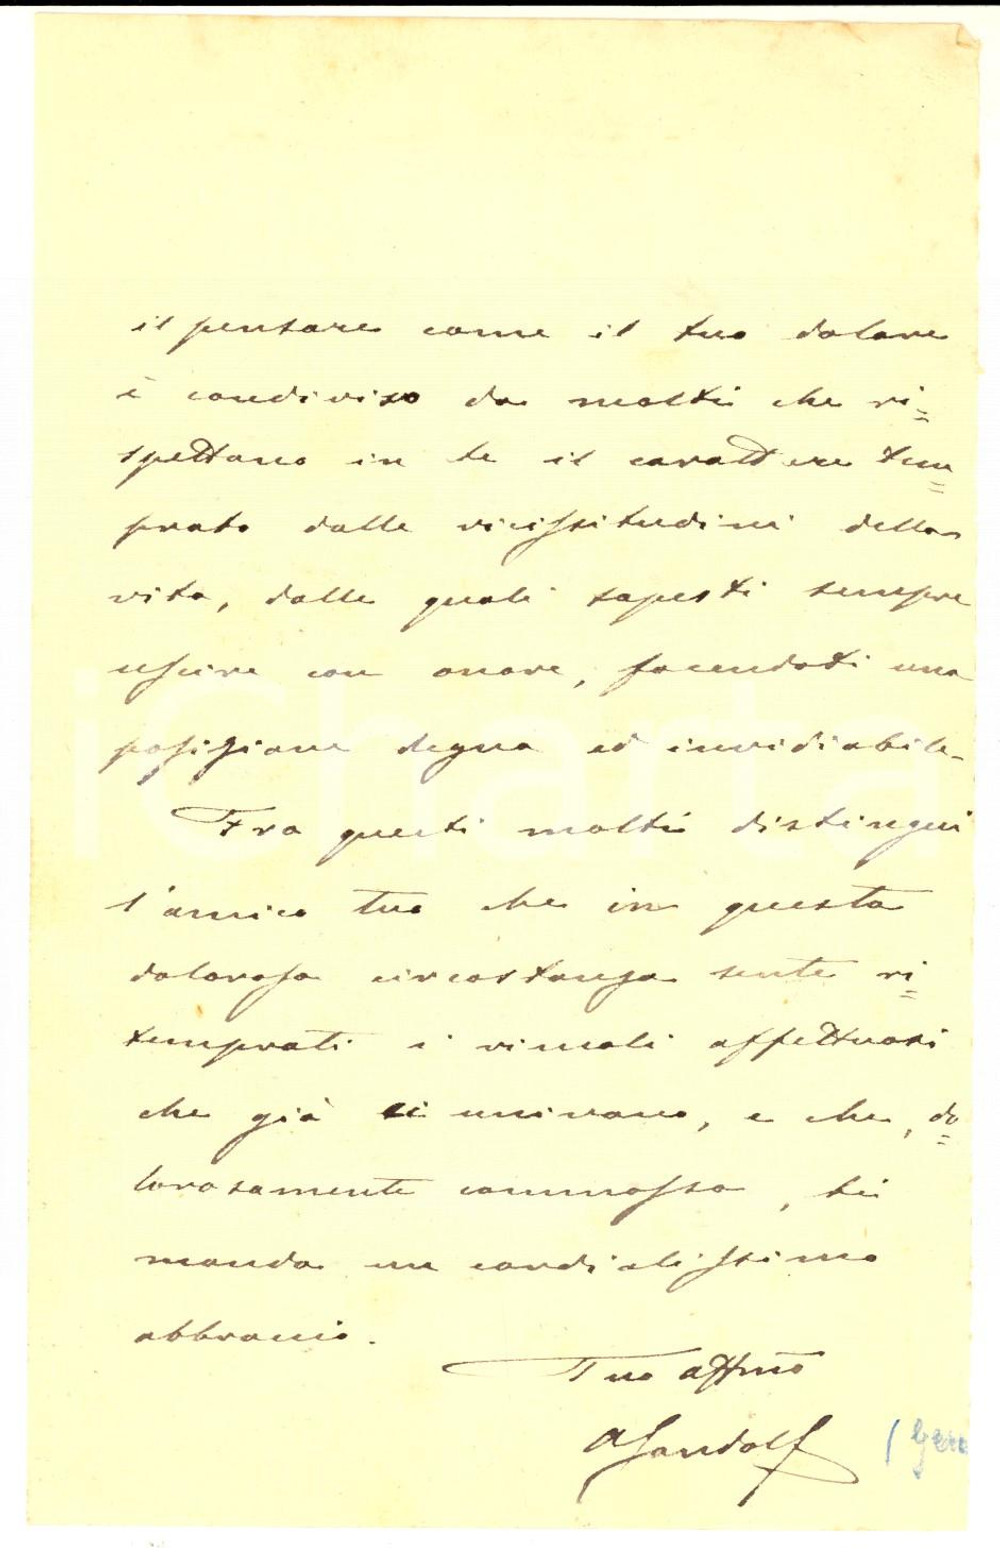 il pensare come il tuo dolore
è condiviso da molti che ri=
spettano in te il carattere tem=
prato dalle vicissitudini della
vita, dalle quali sapesti sempre
uscire con onore, facendoti una
posizione degna ed invidiabile.
Fra questi molti distingui
l'amico tuo che in questa
dolorosa circostanza sente ri=
temprati i vincoli affettuosi
che già ci univano, e che, do=
lorosamente commosso, ti
manda un cordialissimo
abbraccio.
Tuo affmo
AGandolf
(Gen
iCharta